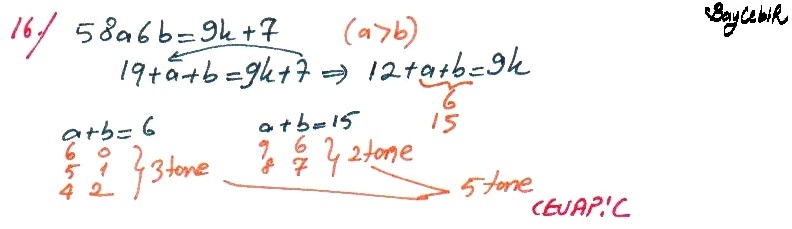 BayCebiR
16-) 58a6b=9k+7 (a>b)
19+a+b=9k+7 ⇒ 12+a+b=9k
6
15
a+b=6 a+b=15
6 0 9 6
5 1 } 3 tane 8 7 } 2 tane
4 2 5 tane
CEVAP: C